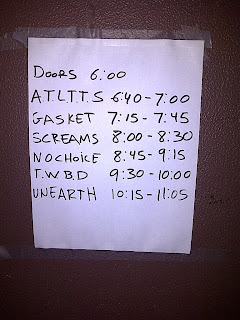 DOORS 6:00
A.T.L.T.T.S 6:40-7:00
GASKET 7:15-7:45
SCREAMS 8:00-8:30
NO CHOICE 8:45-9:15
T.W.B.D 9:30-10:00
UNEARTH 10:15-11:05